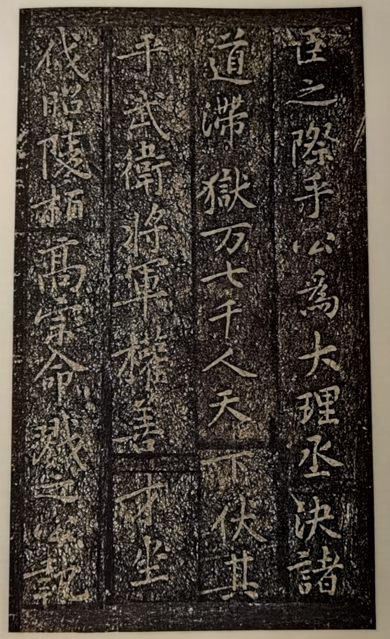 臣之際乎公為大理丞決諸
道滯獄万七千人天下伏其
平武衛將軍權善才坐
伐昭陵栢髙宗命戮之公執